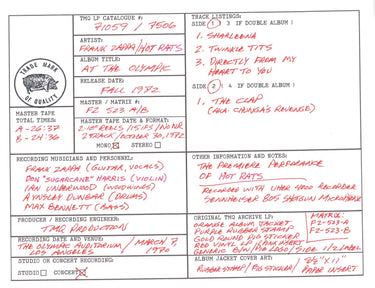 TMQ LP CATALOGUE #:
71059 / 7506
ARTIST:
FRANK ZAPPA/HOT RATS
ALBUM TITLE:
AT THE OLYMPIC
RELEASE DATE:
FALL 1972
MASTER / MATRIX #:
FZ 523 A/B
TRADE MARK
OF QUALITY
MASTER TAPE
TOTAL TIMES:
A - 26:37
B - 24:36
MASTER TAPE DATE & FORMAT:
2-10" REELS /15 IPS/NO NR
2 TRACK/OCTOBER 30, 1972
MONO STEREO
TRACK LISTINGS:
SIDE 1 3 IF DOUBLE ALBUM:
1. SHARLEENA
2. TWINKLE TITS
3. DIRECTLY FROM MY
HEART TO YOU
SIDE 2 4 IF DOUBLE ALBUM:
1. THE CLAP
(AKA: CHUNGA'S REVENGE)
RECORDING MUSICIANS AND PERSONNEL:
FRANK ZAPPA (GUITAR, VOCALS)
DON "SUGARCANE" HARRIS (VIOLIN)
IAN UNDERWOOD (WOODWINDS)
AYNSLEY DUNBAR (DRUMS)
MAX BENNETT (BASS)
OTHER INFORMATION AND NOTES:
THE PREMIERE PERFORMANCE
OF HOT RATS
RECORDED WITH UHER 4000 RECORDER
SENNHEISER 805 SHOTGUN MICROPHONE
PRODUCER / RECORDING ENGINEER:
TMQ PRODUCTION
RECORDING DATE AND VENUE:
THE OLYMPIC AUDITORIUM / MARCH 7,
LOS ANGELES 1970
STUDIO OR CONCERT RECORDING:
STUDIO CONCERT
ORIGINAL TMQ ARCHIVE LP:
ORANGE ALBUM JACKET
PURPLE RUBBER STAMP
GOLD ROUND PIG STICKER
RED VINYL LP
GENERIC B/W PIG LOGO/ SIDE 1/2 LABEL
MATRIX:
FZ-523-A
FZ-523-B
ALBUM JACKET COVER ART:
RUBBER STAMP/PIG STICKER/ 8½" X 11"
PAPER INSERT